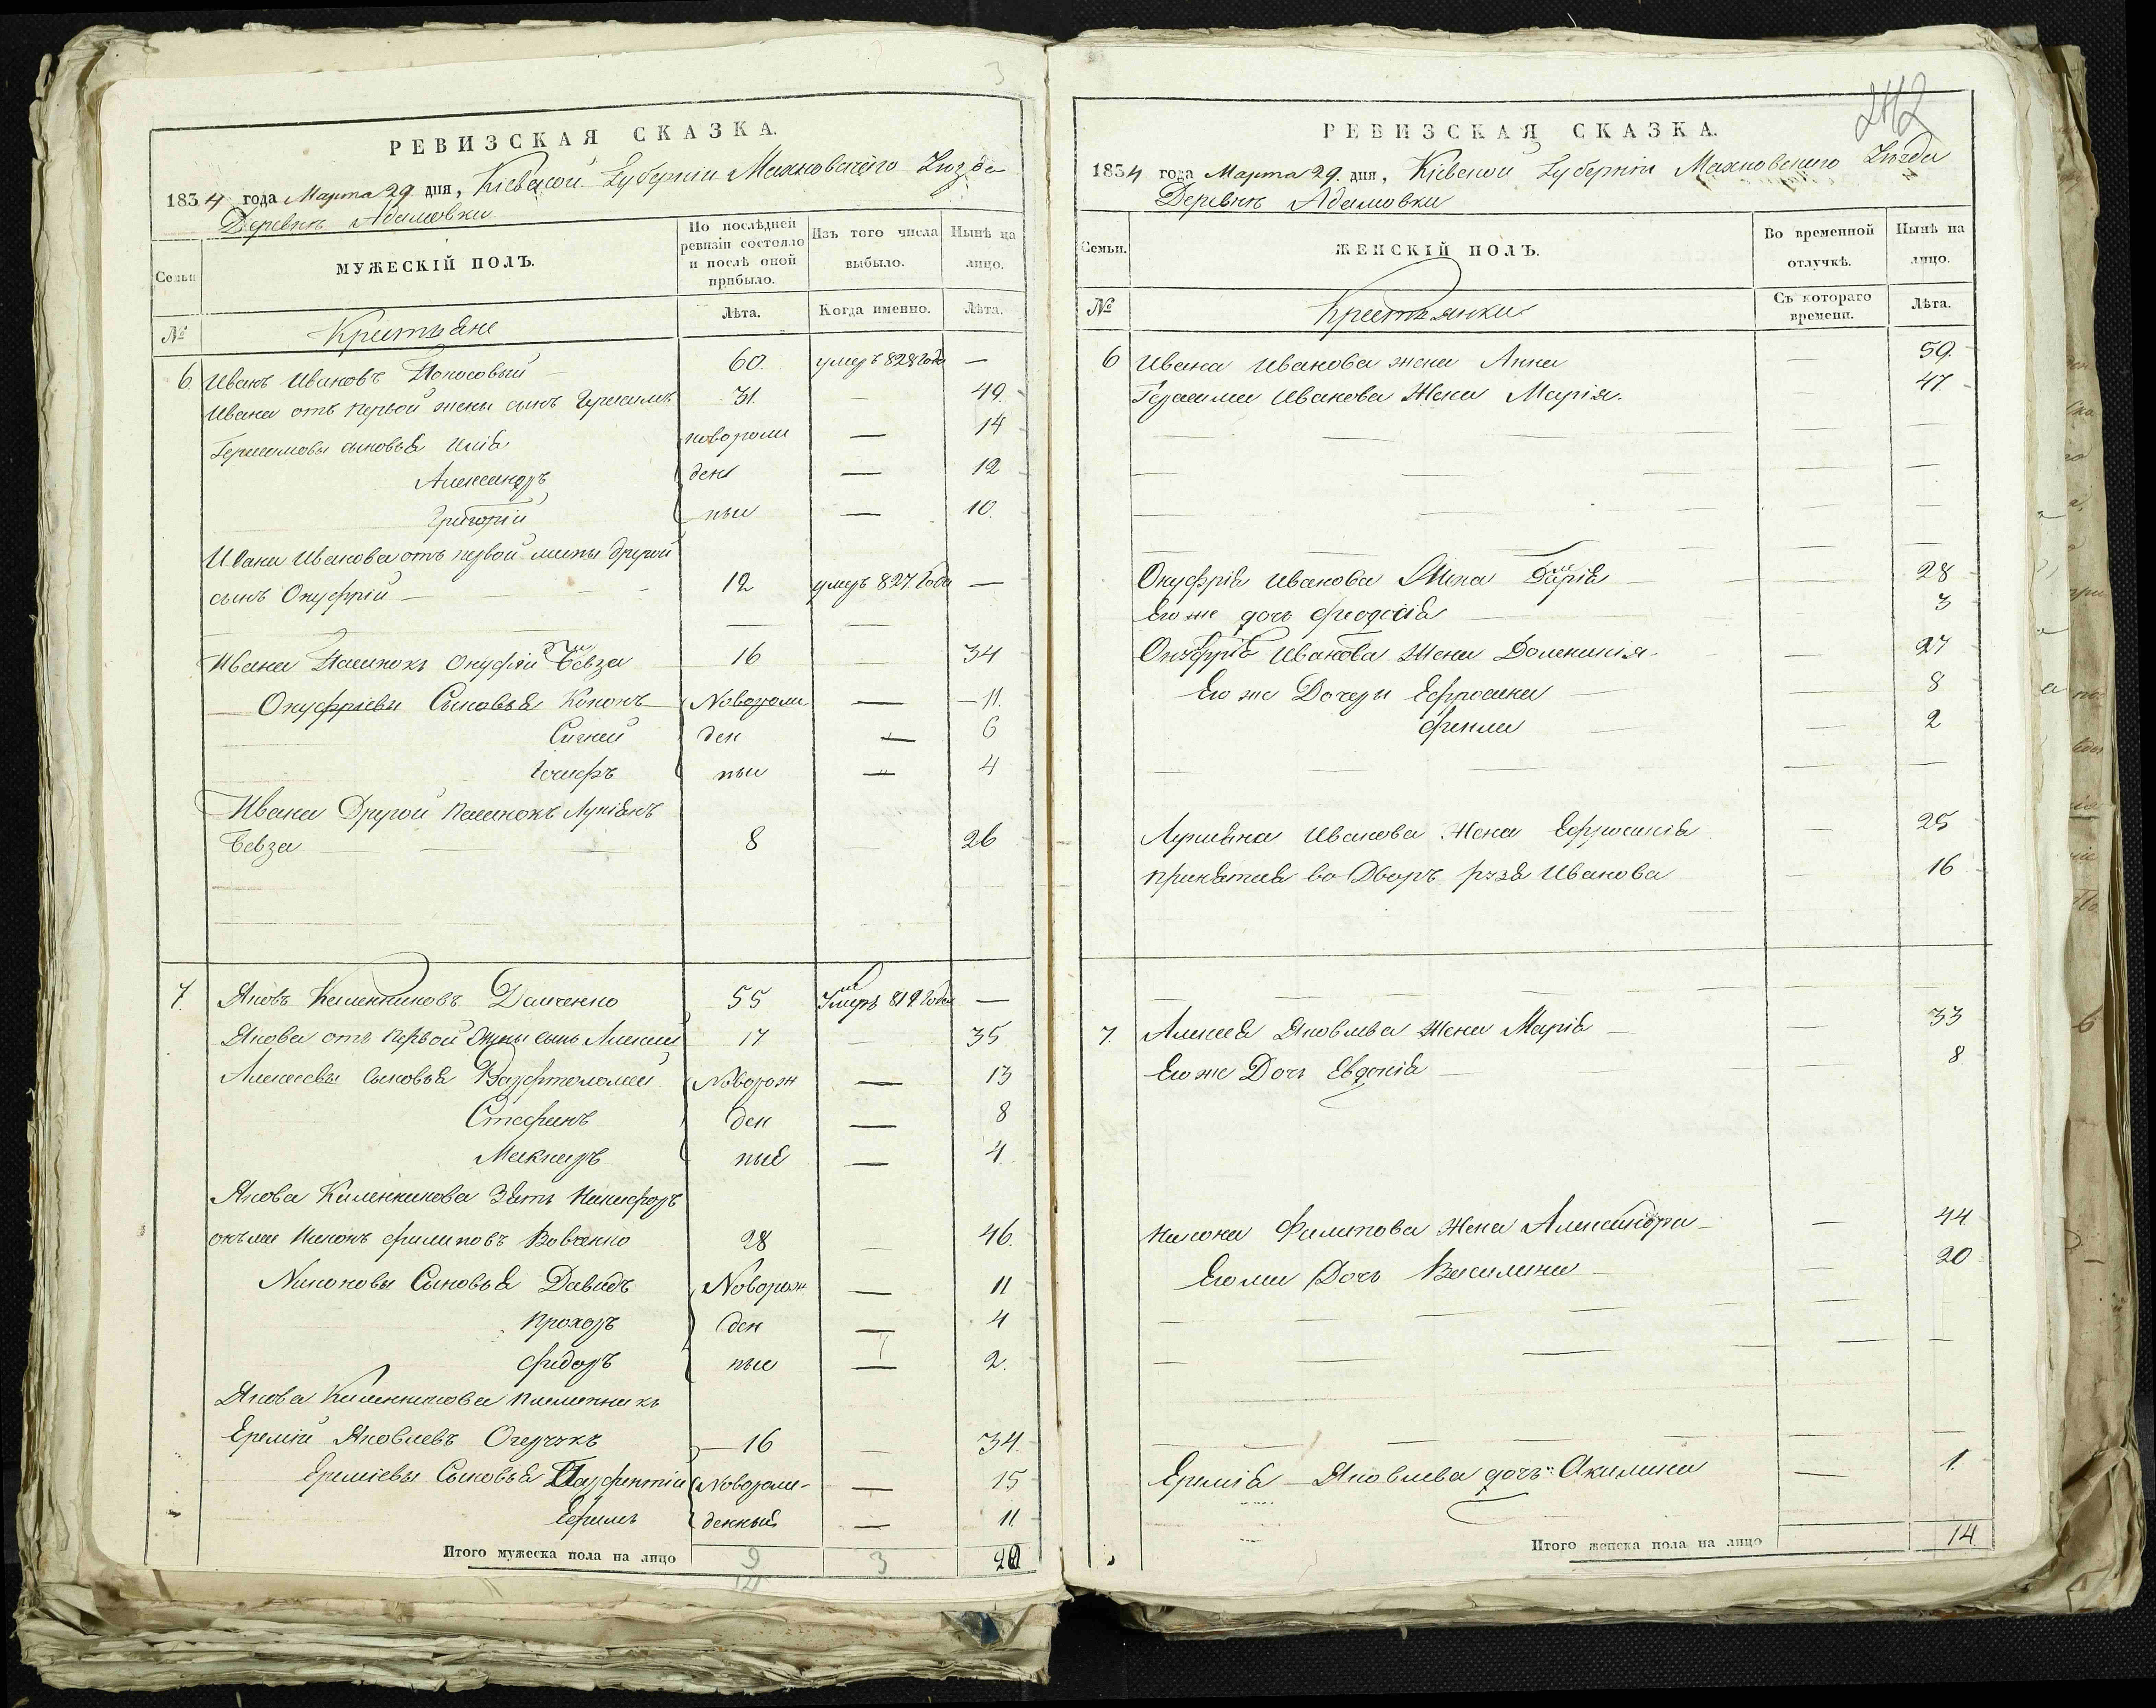 3
РЕВИЗСКАЯ СКАЗКА.
1834 года Марта 29 дня, Кіевской Губерніи Махновскаго Уезда
Деревнѣ Адамовки
Семьи
МУЖЕСКІЙ ПОЛЪ.
По послѣдней ревизіи состояло и послѣ оной прибыло.
Изъ того числа выбыло.
Нынѣ на лицо.
№
Крестьяне
Лѣта.
Когда именно.
Лѣта.
6. Иванъ Ивановъ 60. умеръ 828 года —
Ивана отъ первой жены сынъ Герасимъ 31. — 49.
Герасимовы сыновья Илія новорож — 14
Александръ ден — 12
Григорій ные — 10.
Ивана Иванова отъ первой жены другой
сынъ Онуфрій — 12 умеръ 827 года —
Ивана Пасинокъ Онуфрій Бевза 16 — 34
Онуфріевы Сыновья Кононъ Новорож — 11.
Сигней ден — 6
Іосифъ ные — 4
Ивана Другой пасинокъ Лукіянъ
Бевза 8 — 26
7. Яковъ Калениковъ Данченко 55 Умеръ 819 года —
Якова отъ первой жены сынъ Алексей 17 — 35
Алексеевы сыновья Варфоломей Новорож — 13
Стефанъ ден — 8
Макаръ ные — 4.
Якова Каленикова Зять Никифоръ
онъже Никонъ Филиповъ Вовченко 28 — 46.
Никоновы Сыновья Давидъ Новорож — 11
Прохоръ ден — 4
Фидоръ ные — 2.
Якова Каленикова племянникъ
Еремій Яковлевъ 16 — 34
Ереміевы Сыновья Парфентій Новорож- — 15
Ефимъ денный — 11.
Итого мужеска пола на лицо 9 3 20
242
РЕВИЗСКАЯ СКАЗКА.
1834 года Марта 29. дня, Кіевской Губерніи Махновскаго Уезда
Деревнѣ Адамовки
Семьи.
ЖЕНСКІЙ ПОЛЪ.
Во временной отлучкѣ.
Нынѣ на лицо.
№
Крестьянки
Съ котораго времени.
Лѣта.
6 Ивана Иванова жена Анна — 59.
Герасима Иванова Жена Марія. — 47.
Онуфрія Иванова Жена Дарія — 28
Его же дочь Феодосія — 3
Онуфрія Иванова Жена Доминикія — 27
Его же Дочери Ефросина — 8
Фекла — 2
Лукіяна Иванова Жена Ефросинія — 25
принятая во Дворъ Иванова — 16
7. Алексея Яковлева Жена Марія — 33
Его же Дочь Евдокія — 8
Никона Филипова Жена Александра — 44
Его же Дочь Василина — 20
Еремія Яковлева дочь Акилина — 1.
Итого женска пола на лицо 14.